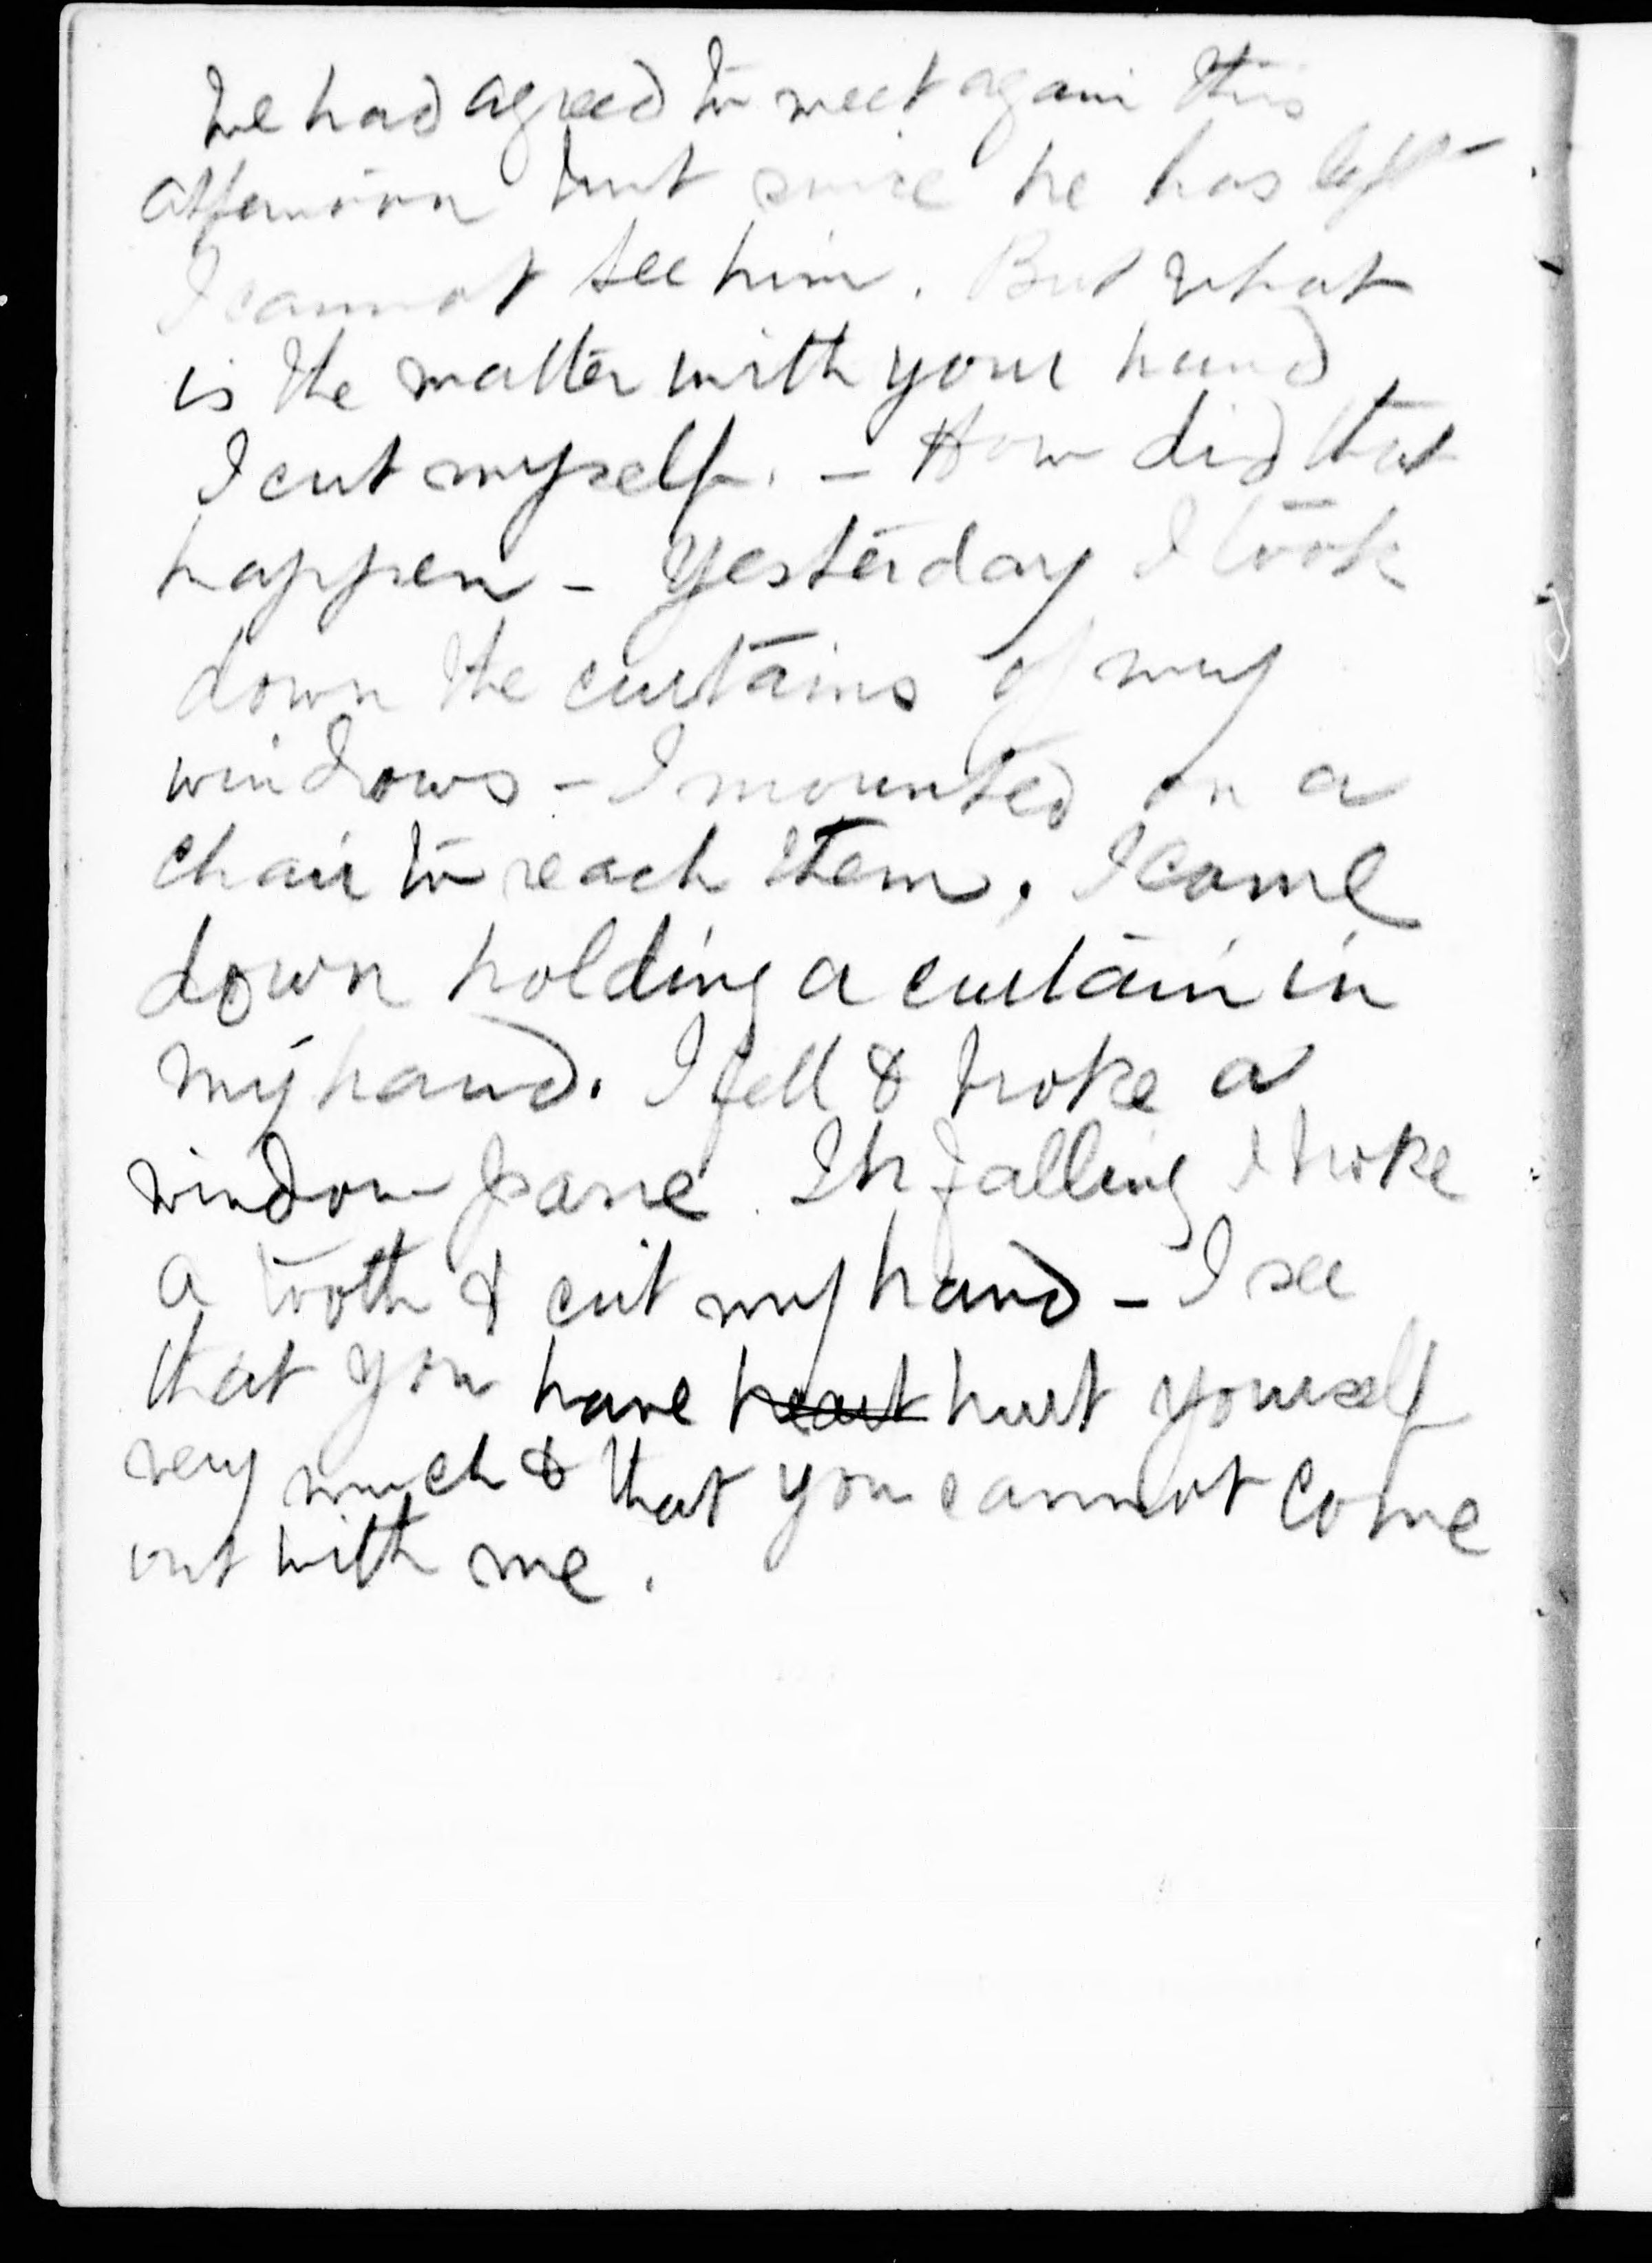 We had agreed to meet again this
afternoon but since he has left
I cannot see him. But what
is the matter with your hand
I cut myself. - How did that
happen - Yesterday I took
down the curtains of my
windows - I mounted on a
chair to reach them, I came
down holding a curtain in
my hand. I fell & broke a
window pane. In falling I broke
a tooth & cut my hand - I see
that you have heart hurt yourself
very much & that you cannot come
out with me.